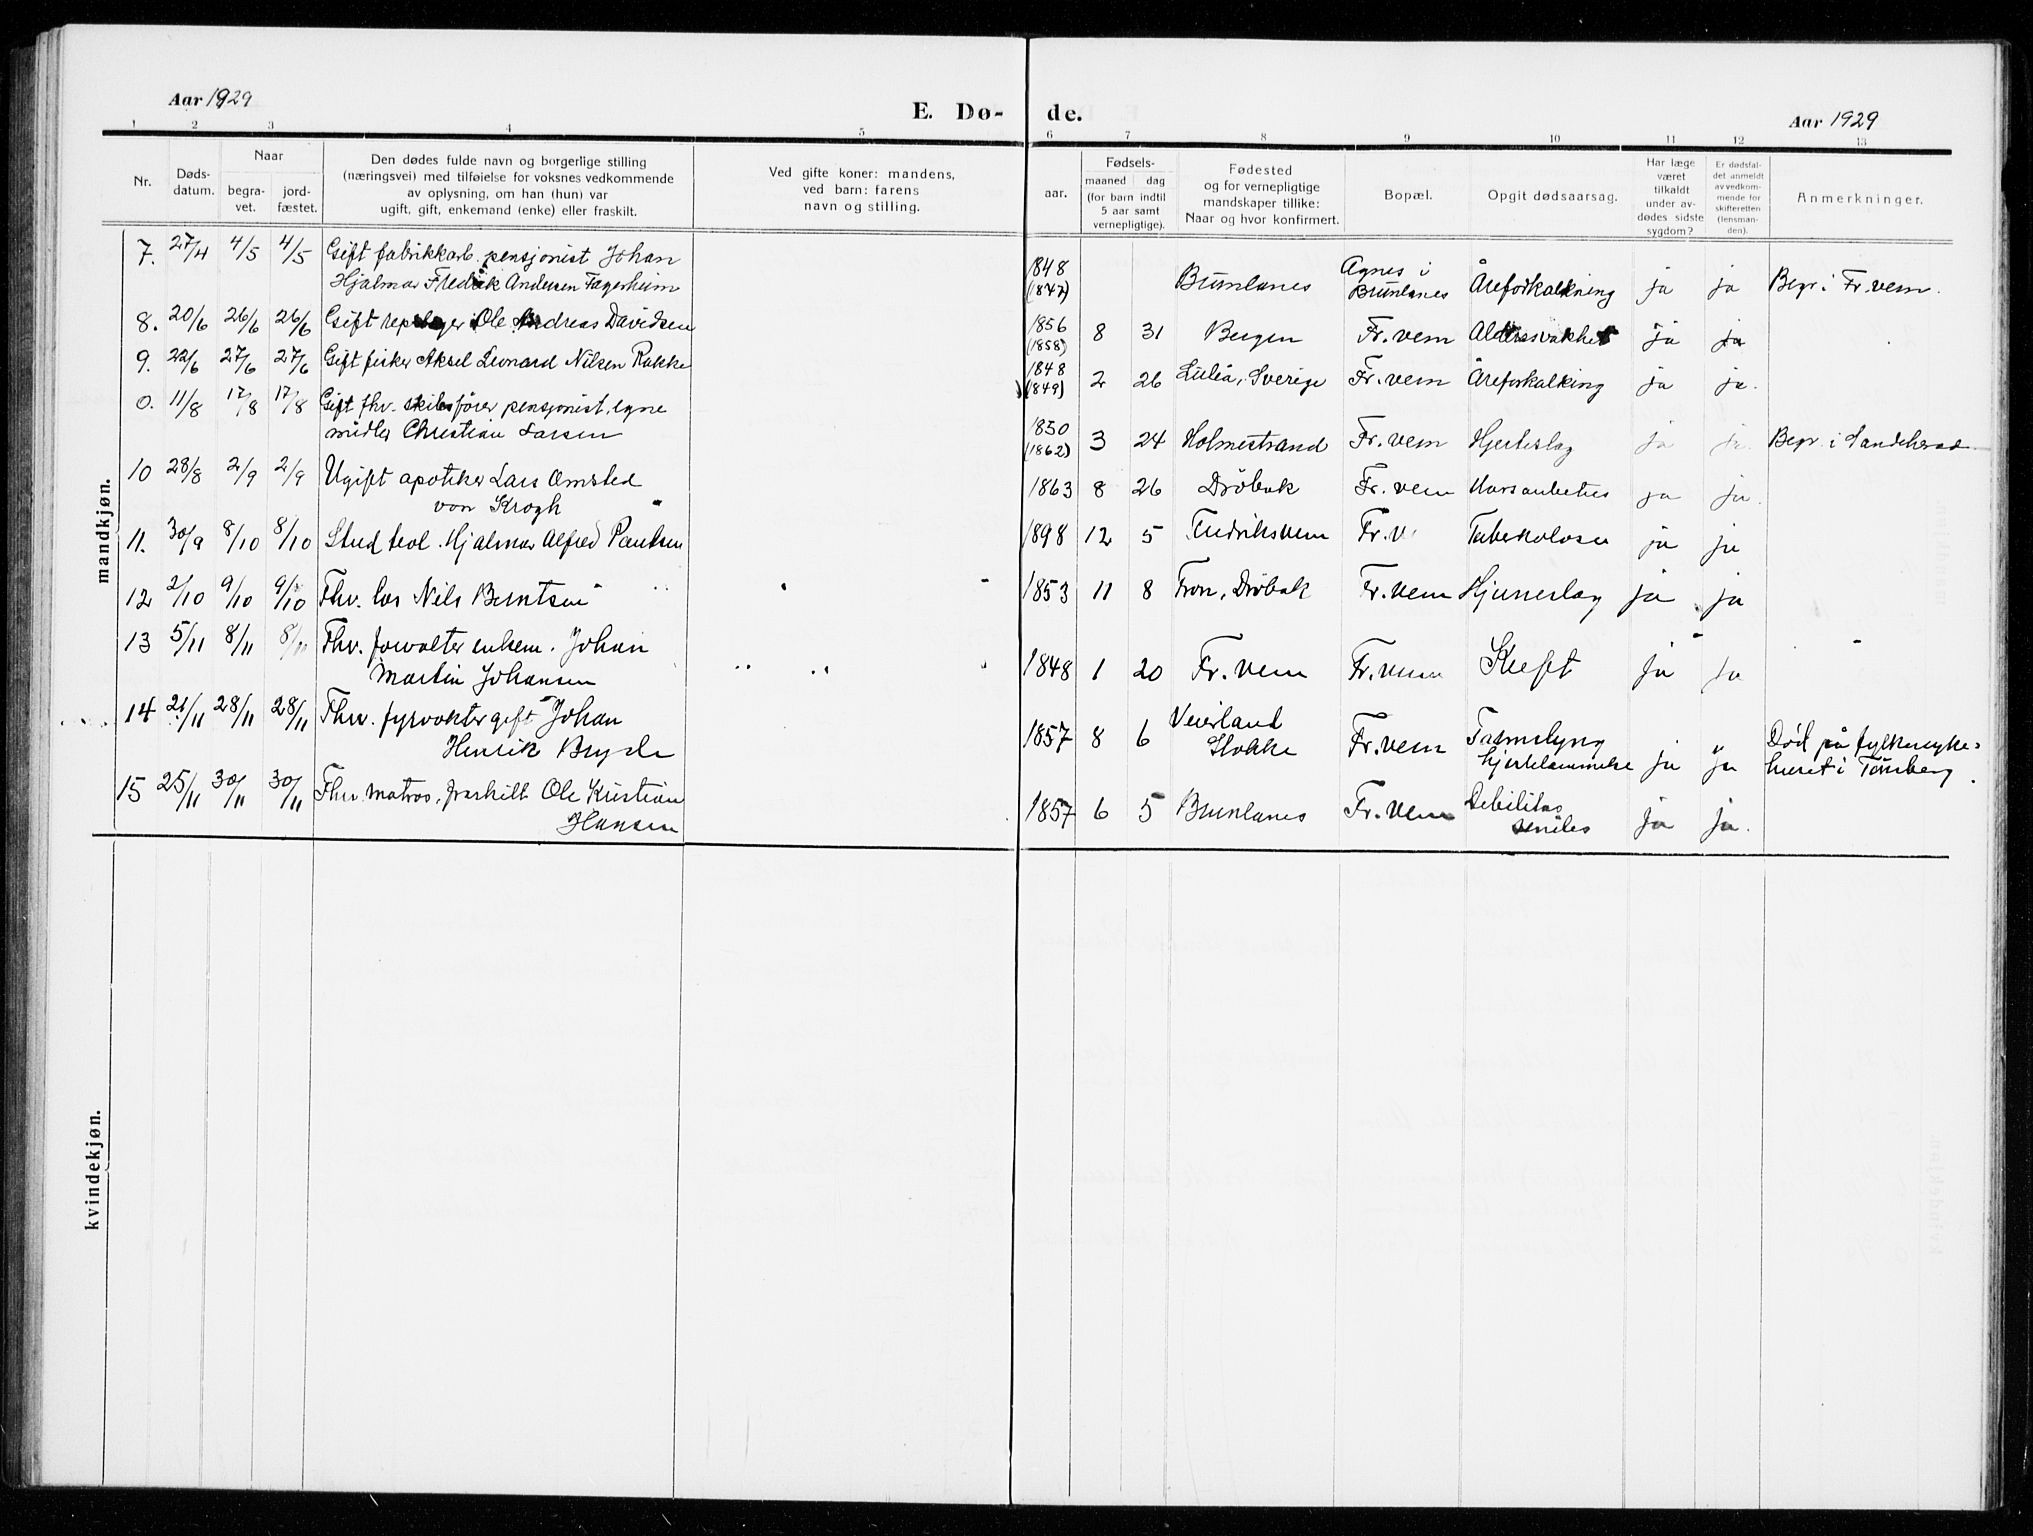 Aar 1929
E. Dø-
de.
Aar 1929
1 2 3 4 5 6 7 8 9 10 11 12 13
Nr.
Døds-
datum.
Naar
begra-
vet.
jord-
fæstet.
Den dødes fulde navn og borgerlige stilling
(næringsvei) med tilføielse for voksnes vedkommende
av oplysning, om han (hun) var
ugift, gift, enkemand (enke) eller fraskilt.
Ved gifte koner: mandens,
ved barn: farens
navn og stilling.
aar.
Fødsels-
maaned dag
(for barn indtil
5 aar samt
vernepligtige).
Fødested
og for vernepligtige
mandskaper tillike:
Naar og hvor konfirmert.
Bopæl.
Opgit dødsaarsag.
Har læge
været
tilkaldt
under av-
dødes sidste
sygdom?
Er dødsfal-
det anmeldt
av vedkom-
mende for
skifteretten
(lensman-
den).
Anmerkninger.
mandkjøn.
7. 27/4 4/5 4/5 Gift fabrikkarb. pensjonist Johan
Hjalmar Fredrik Andersen Fagerheim
1848
(1847) Brunlanes Agnes i
Brunlanes Åreforkalkning ja ja Begr. i Fr.vern.
8. 20/6 26/6 26/6 Gift repslager Ole Andreas Davidsen
1856
(1858) 8 31 Bergen Fr.vern Alderssvakhet ja ja
9. 22/6 27/6 27/6 Gift fisker Aksel Leonard Nilsen Rakke
1848
(1849) 2 26 Luleå, Sverige Fr.vern Åreforkalking ja ja.
0. 11/8 17/8 17/8 Gift fhv. skibsfører pensjonist, egne
midler Christian Larsen
1850
(1862) 3 24 Holmestrand Fr.vern Hjerteslag ja ja. Begr. i Sandeherad
10 28/8 2/9 2/9 Ugift apotiker Lars Omsted
von Krogh
1863 8 26 Drøbak Fr.vern ja ja
11. 30/9 8/10 8/10 Stud teol. Hjalmar Alfred Paulsen
1898 12 5 Fredriksvern Fr.v Tuberkulose ja ja
12 2/10 9/10 9/10 Fhv. los Nils Berntsen
1853 11 8 Fron, Drøbak Fr.vern ja ja
13 5/11 8/11 8/11 Fhv. forvalter enkem. Johan
Martin Johansen
1848 1 20 Fr.vern Fr.vern Kreft ja ja
14 21/11 28/11 28/11 Fhv. fyrvokter gift Johan
Henrik Bryde
1857 8 6 Veierland
Stokke Fr.vern Tarmslyng
hjertelammelse ja ja Død på fylkesyke-
huset i Tønsberg.
15 25/11 30/11 30/11 Fhv. matros, fraskilt Ole Kristian
Hansen
1857 6 5 Brunlanes Fr.vern Debilitas
seniles ja ja.
kvindekjøn.